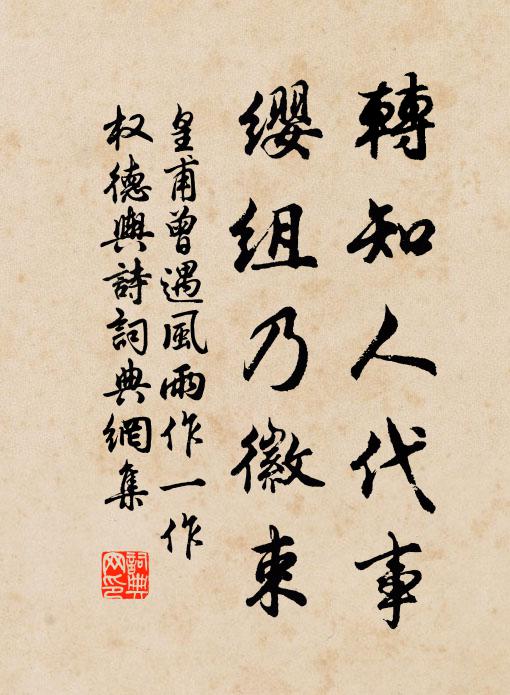 轉知人代事
纓組乃徽束
皇甫曾遇風雨作一作
权德輿詩詞典網集
詞典网印